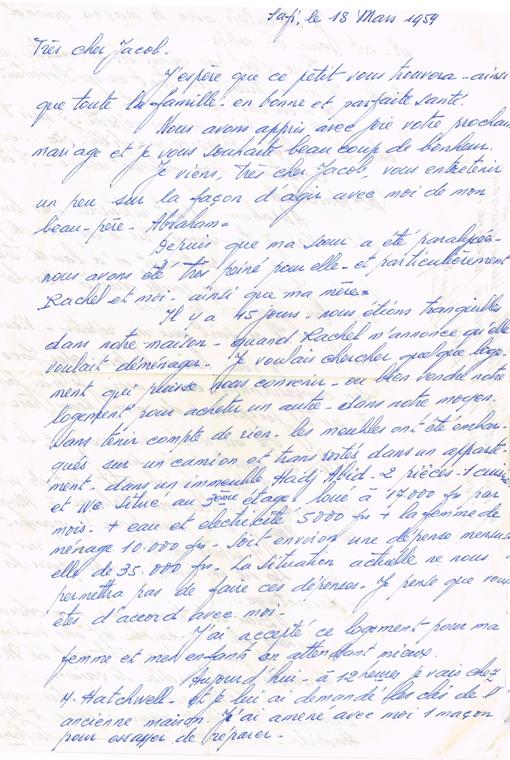 Safi, le 18 Mars 1959
Très cher Jacob.
J'espère que ce petit vous trouvera - ainsi
que toute la famille - en bonne et parfaite santé.
Nous avons appris avec joie votre prochain
mariage et je vous souhaite beaucoup de bonheur.
Je viens, très cher Jacob, vous entretenir
un peu sur la façon d'agir avec moi de mon
beau-père - Abraham -
Depuis que ma sœur a été paralysée -
nous avons été très peiné pour elle - et particulièrement
Rachel et moi - ainsi que ma mère -
Il y a 45 jours - nous étions tranquilles
dans notre maison - quand Rachel m'annonce qu'elle
voulait déménager - Je voulais chercher quelque loge-
ment qui puisse nous convenir - ou bien vendre notre
logement pour acheter un autre - dans notre moyen.
Sans tenir compte de rien - les meubles ont été embar-
qués sur un camion et transportés dans un apparte-
ment - dans un immeuble Hadj Abid - 2 pièces - 1 cuisine
et We situé au 3ème étage loué à 17.000 frs par
mois - + eau et électricité 5000 frs + la femme de
ménage 10.000 frs - soit environ une dépense mensu-
elle de 35.000 frs - La situation actuelle ne nous
permettra pas de faire ces dépenses - Je pense que vous
êtes d'accord avec moi -
J'ai accepté ce logement pour ma
femme et mes enfants en attendant mieux.
Aujourd'hui - à 12 heures je vais chez
M. Hatchwell - et je lui ai demandé les clés de l'
ancienne maison. J'ai amené avec moi 1 maçon
pour essayer de réparer -